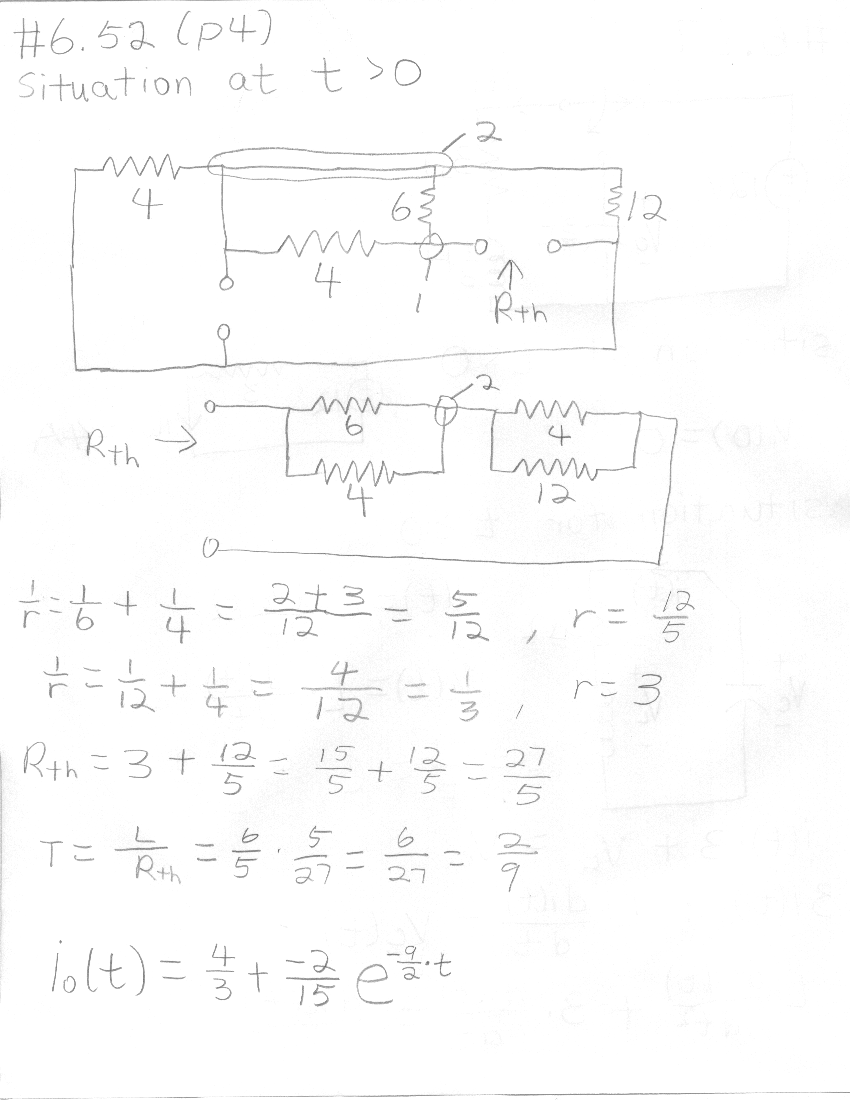 #6.52 (p4)
Situation at t>0
2
4
6
12
4
1
Rth
2
Rth →
6
4
4
12
1/r = 1/6 + 1/4 = (2+3)/12 = 5/12 , r = 12/5
1/r = 1/12 + 1/4 = 4/12 = 1/3 , r = 3
Rth = 3 + 12/5 = 15/5 + 12/5 = 27/5
T = L/Rth = 6/5 · 5/27 = 6/27 = 2/9
i₀(t) = 4/3 + -2/15 e^(-9/2·t)